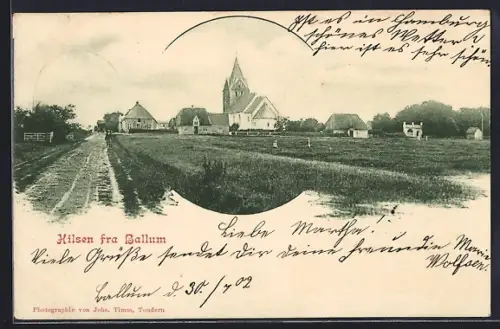 Ist es in Hamburg
schönes Wetter?
hier ist es sehr schön.
Hilsen fra Ballum
Liebe Martha!
Viele Grüße sendet Dir deine Freundin Marie
Wolfsen.
Ballum d. 30./7 02
Photographie von Johs. Timm, Tondern